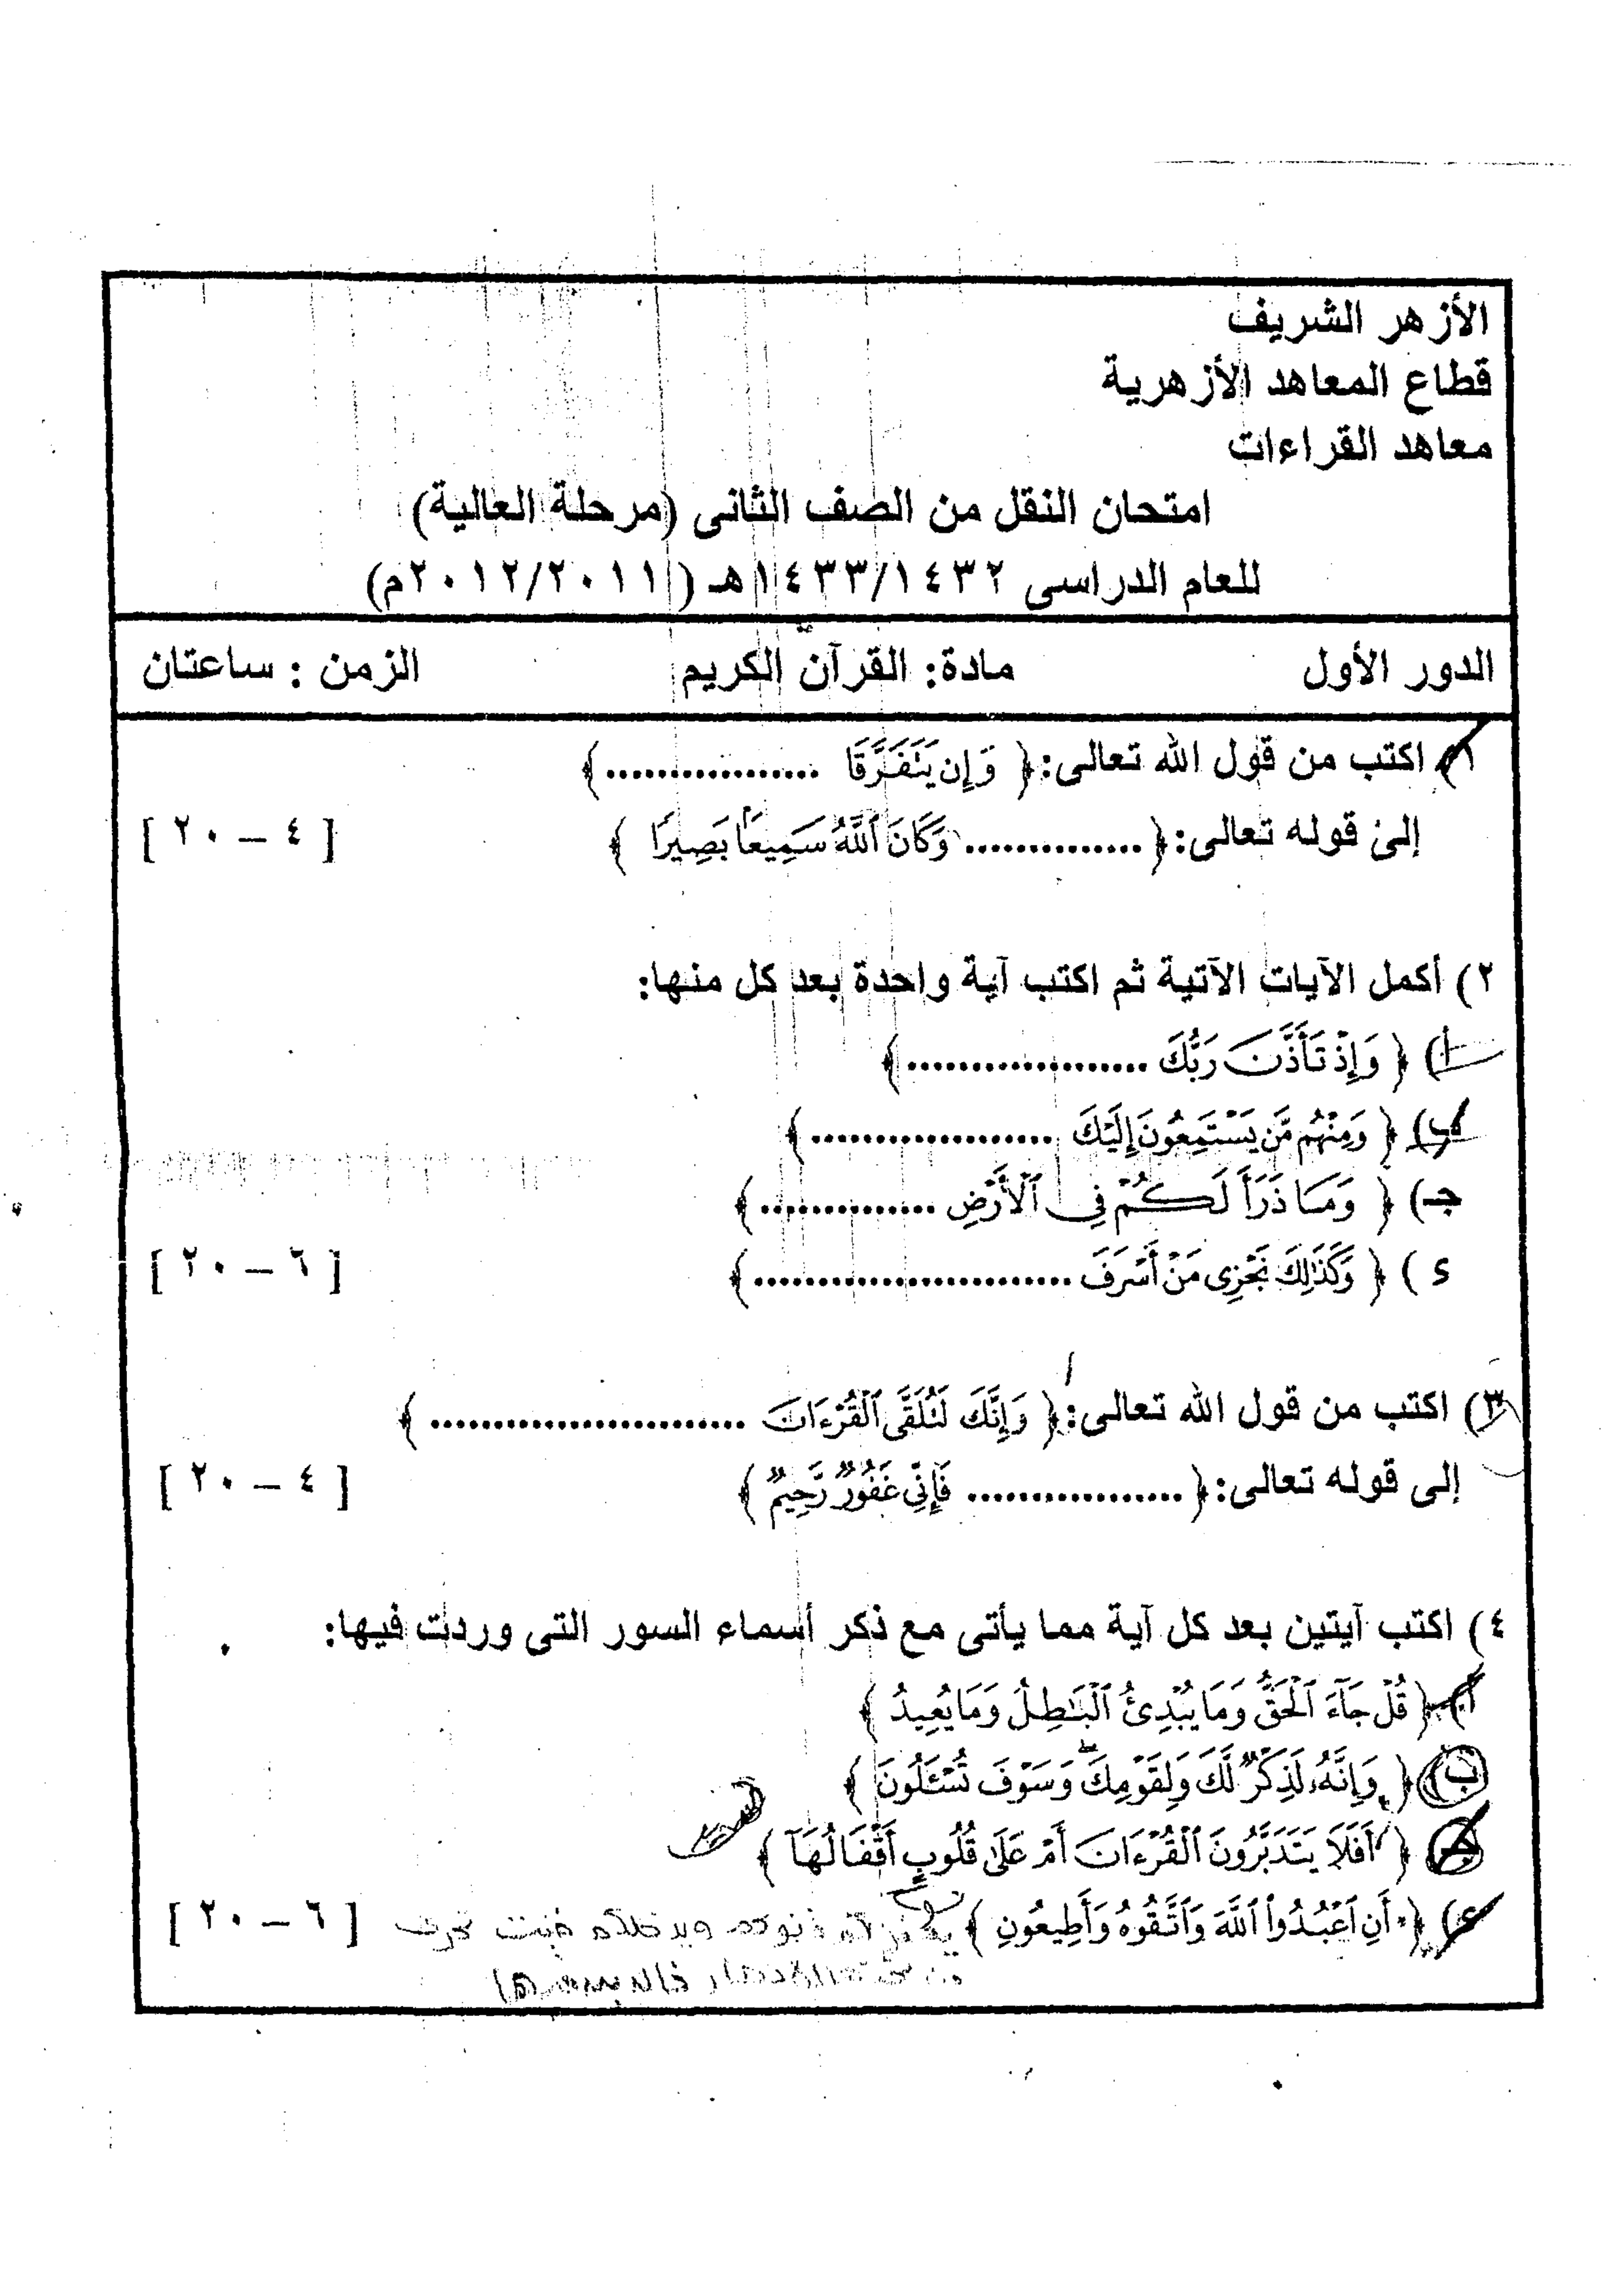 الأزهر الشريف
قطاع المعاهد الأزهرية
معاهد القراءات
امتحان النقل من الصف الثانى (مرحلة العالية)
للعام الدراسى ١٤٣٣/١٤٣٢هـ (٢٠١٢/٢٠١١م)
الدور الأول مادة: القرآن الكريم الزمن : ساعتان
١) اكتب من قول الله تعالى: ﴿ وَإِن يَتَفَرَّقَا ................. ﴾
إلى قوله تعالى: ﴿ .............. وَكَانَ ٱللَّهُ سَمِيعًۢا بَصِيرًا ﴾ [ ٤ – ٢٠ ]
٢) أكمل الآيات الآتية ثم اكتب آية واحدة بعد كل منها:
أ) ﴿ وَإِذْ تَأَذَّنَ رَبُّكَ ................... ﴾
ب) ﴿ وَمِنْهُم مَّن يَسْتَمِعُونَ إِلَيْكَ ................... ﴾
جـ) ﴿ وَمَا ذَرَأَ لَكُمْ فِى ٱلْأَرْضِ .............. ﴾
د) ﴿ وَكَذَٰلِكَ نَجْزِى مَنْ أَسْرَفَ ......................... ﴾ [ ٦ – ٢٠ ]
٣) اكتب من قول الله تعالى: ﴿ وَإِنَّكَ لَتُلَقَّى ٱلْقُرْءَانَ ......................... ﴾
إلى قوله تعالى: ﴿ ................. فَإِنِّى غَفُورٌ رَّحِيمٌ ﴾ [ ٤ – ٢٠ ]
٤) اكتب آيتين بعد كل آية مما يأتى مع ذكر أسماء السور التى وردت فيها:
أ) ﴿ قُلْ جَآءَ ٱلْحَقُّ وَمَا يُبْدِئُ ٱلْبَٰطِلُ وَمَا يُعِيدُ ﴾
ب) ﴿ وَإِنَّهُۥ لَذِكْرٌ لَّكَ وَلِقَوْمِكَ ۖ وَسَوْفَ تُسْـَٔلُونَ ﴾
جـ) ﴿ أَفَلَا يَتَدَبَّرُونَ ٱلْقُرْءَانَ أَمْ عَلَىٰ قُلُوبٍ أَقْفَالُهَآ ﴾
د) ﴿ أَنِ ٱعْبُدُوا۟ ٱللَّهَ وَٱتَّقُوهُ وَأَطِيعُونِ ﴾ [ ٦ – ٢٠ ]